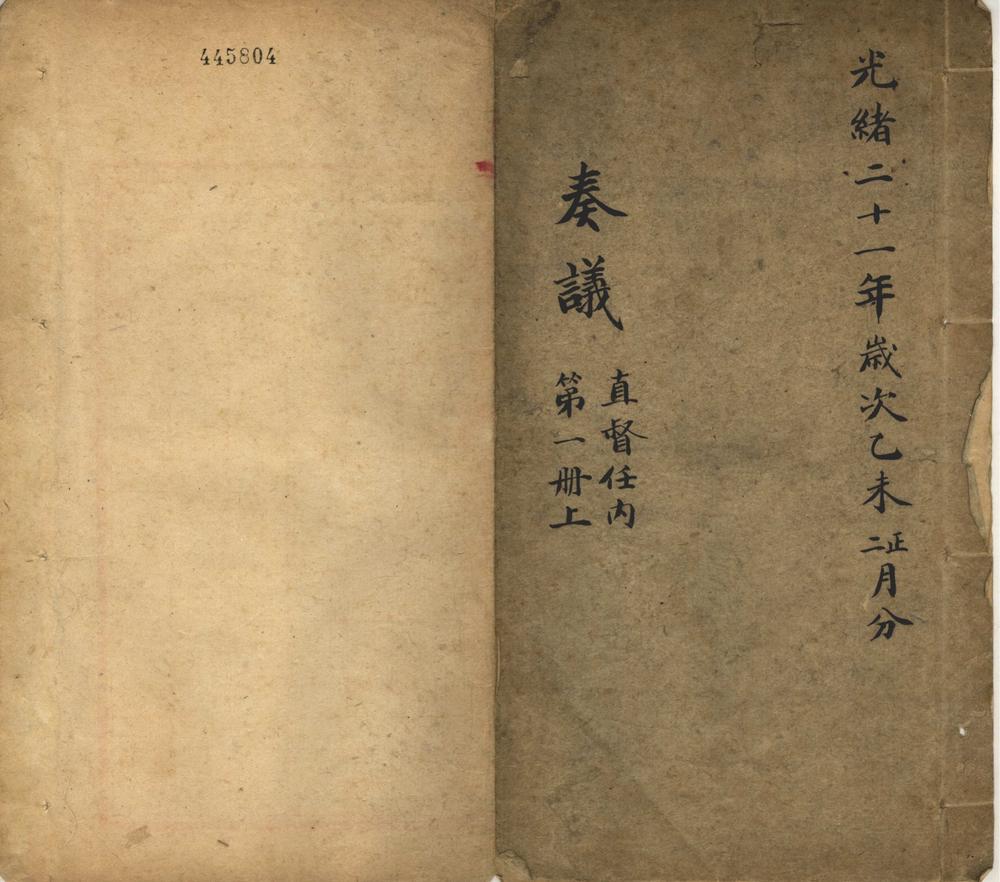 光緒二十一年歲次乙未正二月分
奏議
直督任内
第一册上
445804